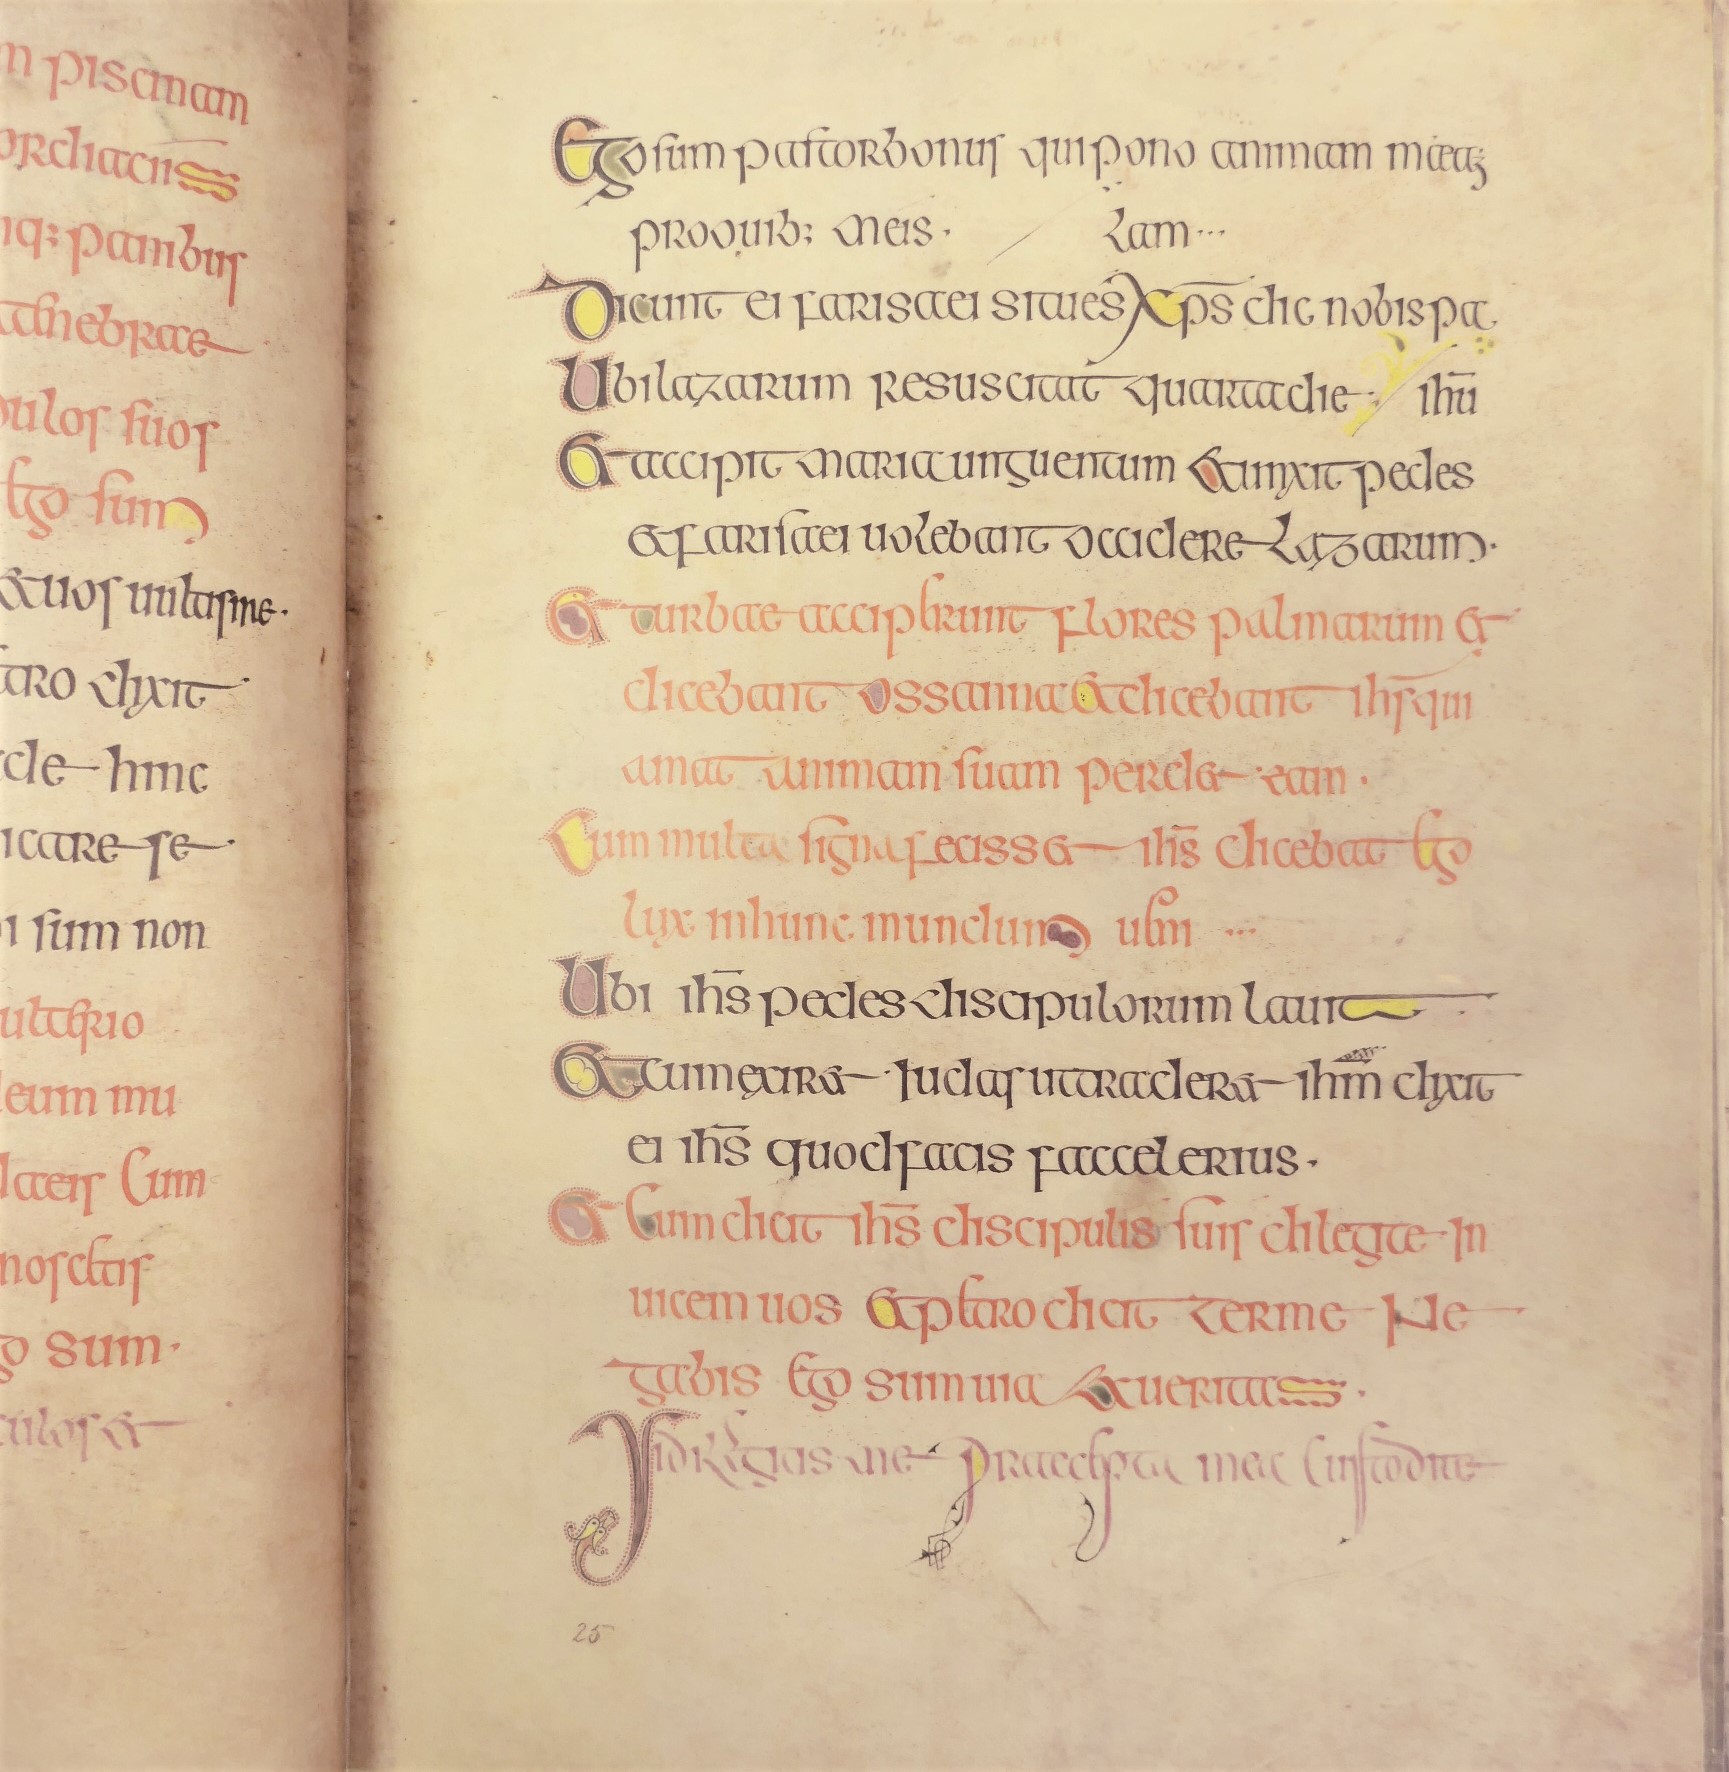 n piscinam
orchacii
nq; panibus
athenebrae
pulos suos
Ego sum
&uos uultisme.
tro dixit
de hinc
icare se
i sum non
ulterio
leum mu
laeis Cum
noscetis
go sum.
culos &
Ego sum pastor bonus qui pono animam meaz
pro ouib; meis. lam...
Dicunt ei farisaei situes xp̄s dic nobis pa
Ubi lazarum resuscitat quarta die ihū
& accipit maria unguentum & unxit pedes
& farisaei uolebant occidere lazarum.
& turbae acciperunt flores palmarum &
dicebant ossanna & dicebant ihs̄ qui
amat animam suam perd& eam.
Cum multa signa feciss& ihs̄ dicebat Ego
lux inhunc mundum ueni ...
Ubi ihs̄ pedes discipulorum lauit
& cum exir& Iudas utrader& ihm̄ dixit
ei ihs̄ quod facis fac celerius.
& Cum dicit ihs̄ discipulis suis dilegite In
uicem uos & petro dicit ter me Ne
gabis Ego sum uia & ueritas.
Si diligitis me praecepta mea Custodite
25